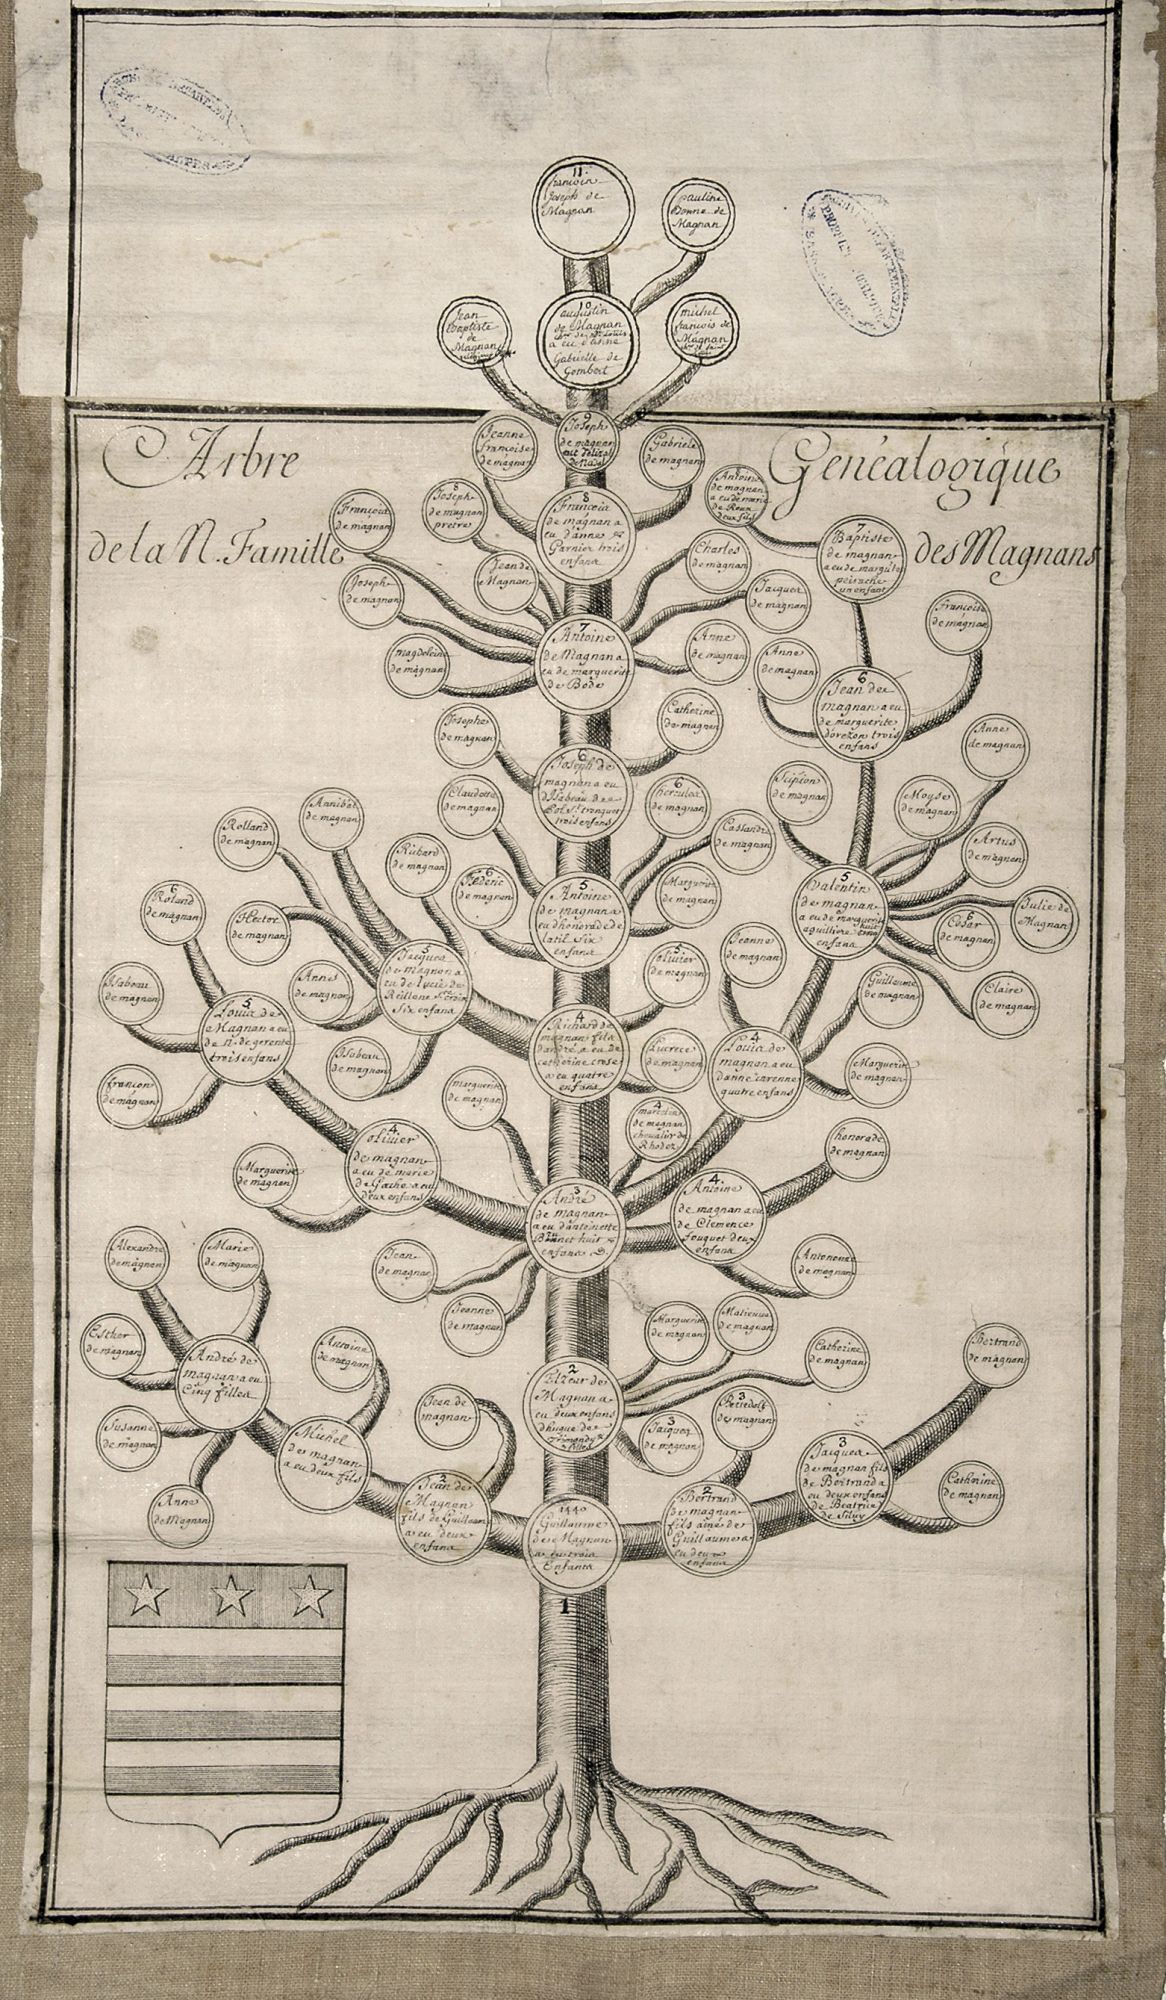 11.
Joseph de
Magnan
pauline
de
Magnan
Jean
Baptiste
de
Magnan
10
augustin
de Magnan
a eu d'anne
Gabrielle de
Gombert
michel
françois de
Magnan
9
Joseph
de magnan
Arbre Genéalogique
de la N. Famille des Magnans
Jeanne
françoise
de magnan
Gabriele
de magnan
8
Antoine
de magnan
a eu de marie
de Roux
deux fils
Françoia
de magnan
8
Joseph
de magnan
pretre
8
Francoia
de magnan a
eu d'anne
Garnier trois
enfana
7
Baptiste
de magnan
a eu de margte
peiruche
un enfant
Charles
de magnan
Jean de
Magnan
Joseph
de magnan
Jacques
de magnan
Françoise
de magnan
magdeleine
de magnan
7
Antoine
de Magnan a
eu de marguerite
de Bode
Anne
de magnan
Anne
de magnan
6
Jean de
magnan a eu
de marguerite
d'orezon trois
enfans
Josephe
de magnan
Catherine
de magnan
Anne
de magnan
6
Joseph de
magnan a eu
d'Isabeau de
trois enfans
Claudette
de magnan
6
hercules
de magnan
Scipion
de magnan
Moyse
de magnan
Annibal
de magnan
Rolland
de magnan
Cassandre
de magnan
Artus
de magnan
Richard
de magnan
6
Federic
de magnan
Marguerite
de magnan
6
Roland
de magnan
Hector
de magnan
5
Antoine
de magnan a
eu d'honorade de
latil Six
enfana
5
Valentin
de magnan
a eu de marguerite
aguilliere cinq
enfana
Julie de
Magnan
6
Cesar
de magnan
Jeanne
de magnan
5
olivier
de magnan
Isabeau
de magnan
Anne
de magnan
5
Jacques
de magnan a
eu de lucie de
Six enfana
Guillaume
de magnan
Claire
de magnan
5
Louis de
Magnan a eu
de n. de gerente
trois enfans
4
Richard de
magnan fils
d'andré a eu de
catherine crose
a eu quatre
enfana
Lucrece
de magnan
4
Louis de
magnan a eu
d'anne varenne
quatre enfans
Marguerite
de magnan
Isabeau
de magnan
françon
de magnan
marguerite
de magnan
4
de magnan
chevalier de
Rhodez
honorade
de magnan
4.
olivier
de magnan
a eu de marie
de Gache a eu
deux enfans
Marguerite
de magnan
3
André
de magnan
a eu d'antoinette
huit
enfana
4.
Antoine
de magnan a eu
de Clemence
fouquet deux
enfana
Alexandre
de magnan
Marie
de magnan
Jean
de magnan
de magnan
Jeanne
de magnan
Marguerite
de magnan
de magnan
Esther
de magnan
Antoine
de magnan
Catherine
de magnan
Bertrand
de magnan
André de
magnan a eu
Cinq filles
2
Elzear de
Magnan a
eu deux enfans
Jean de
magnan
3
de magnan
3
Jacques
de magnan
Susanne
de magnan
Michel
de magnan
a eu deux fils
3
Jacques
de magnan fils
de Bertrand a
eu deux enfans
de Beatrix
de Siluy
Catherine
de magnan
Anne
de Magnan
2
Jean de
Magnan
fils de Guillaum
a eu deux
enfana
1440
Guillaume
de Magnan
a eu trois
Enfants
2
Bertrand
de magnan
fils aîné de
Guillaume a
eu deux
enfans
1